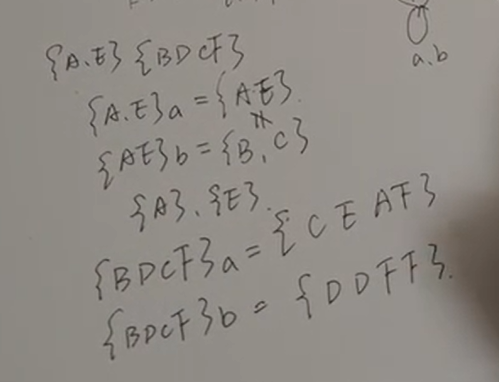 {A.E} {BDCF}
a.b
{A.E}a = {AE}.
{AE}b = {B,C}
{A}.{E}.
{BDCF}a = {C E A F}
{BDCF}b = {D D F F}.